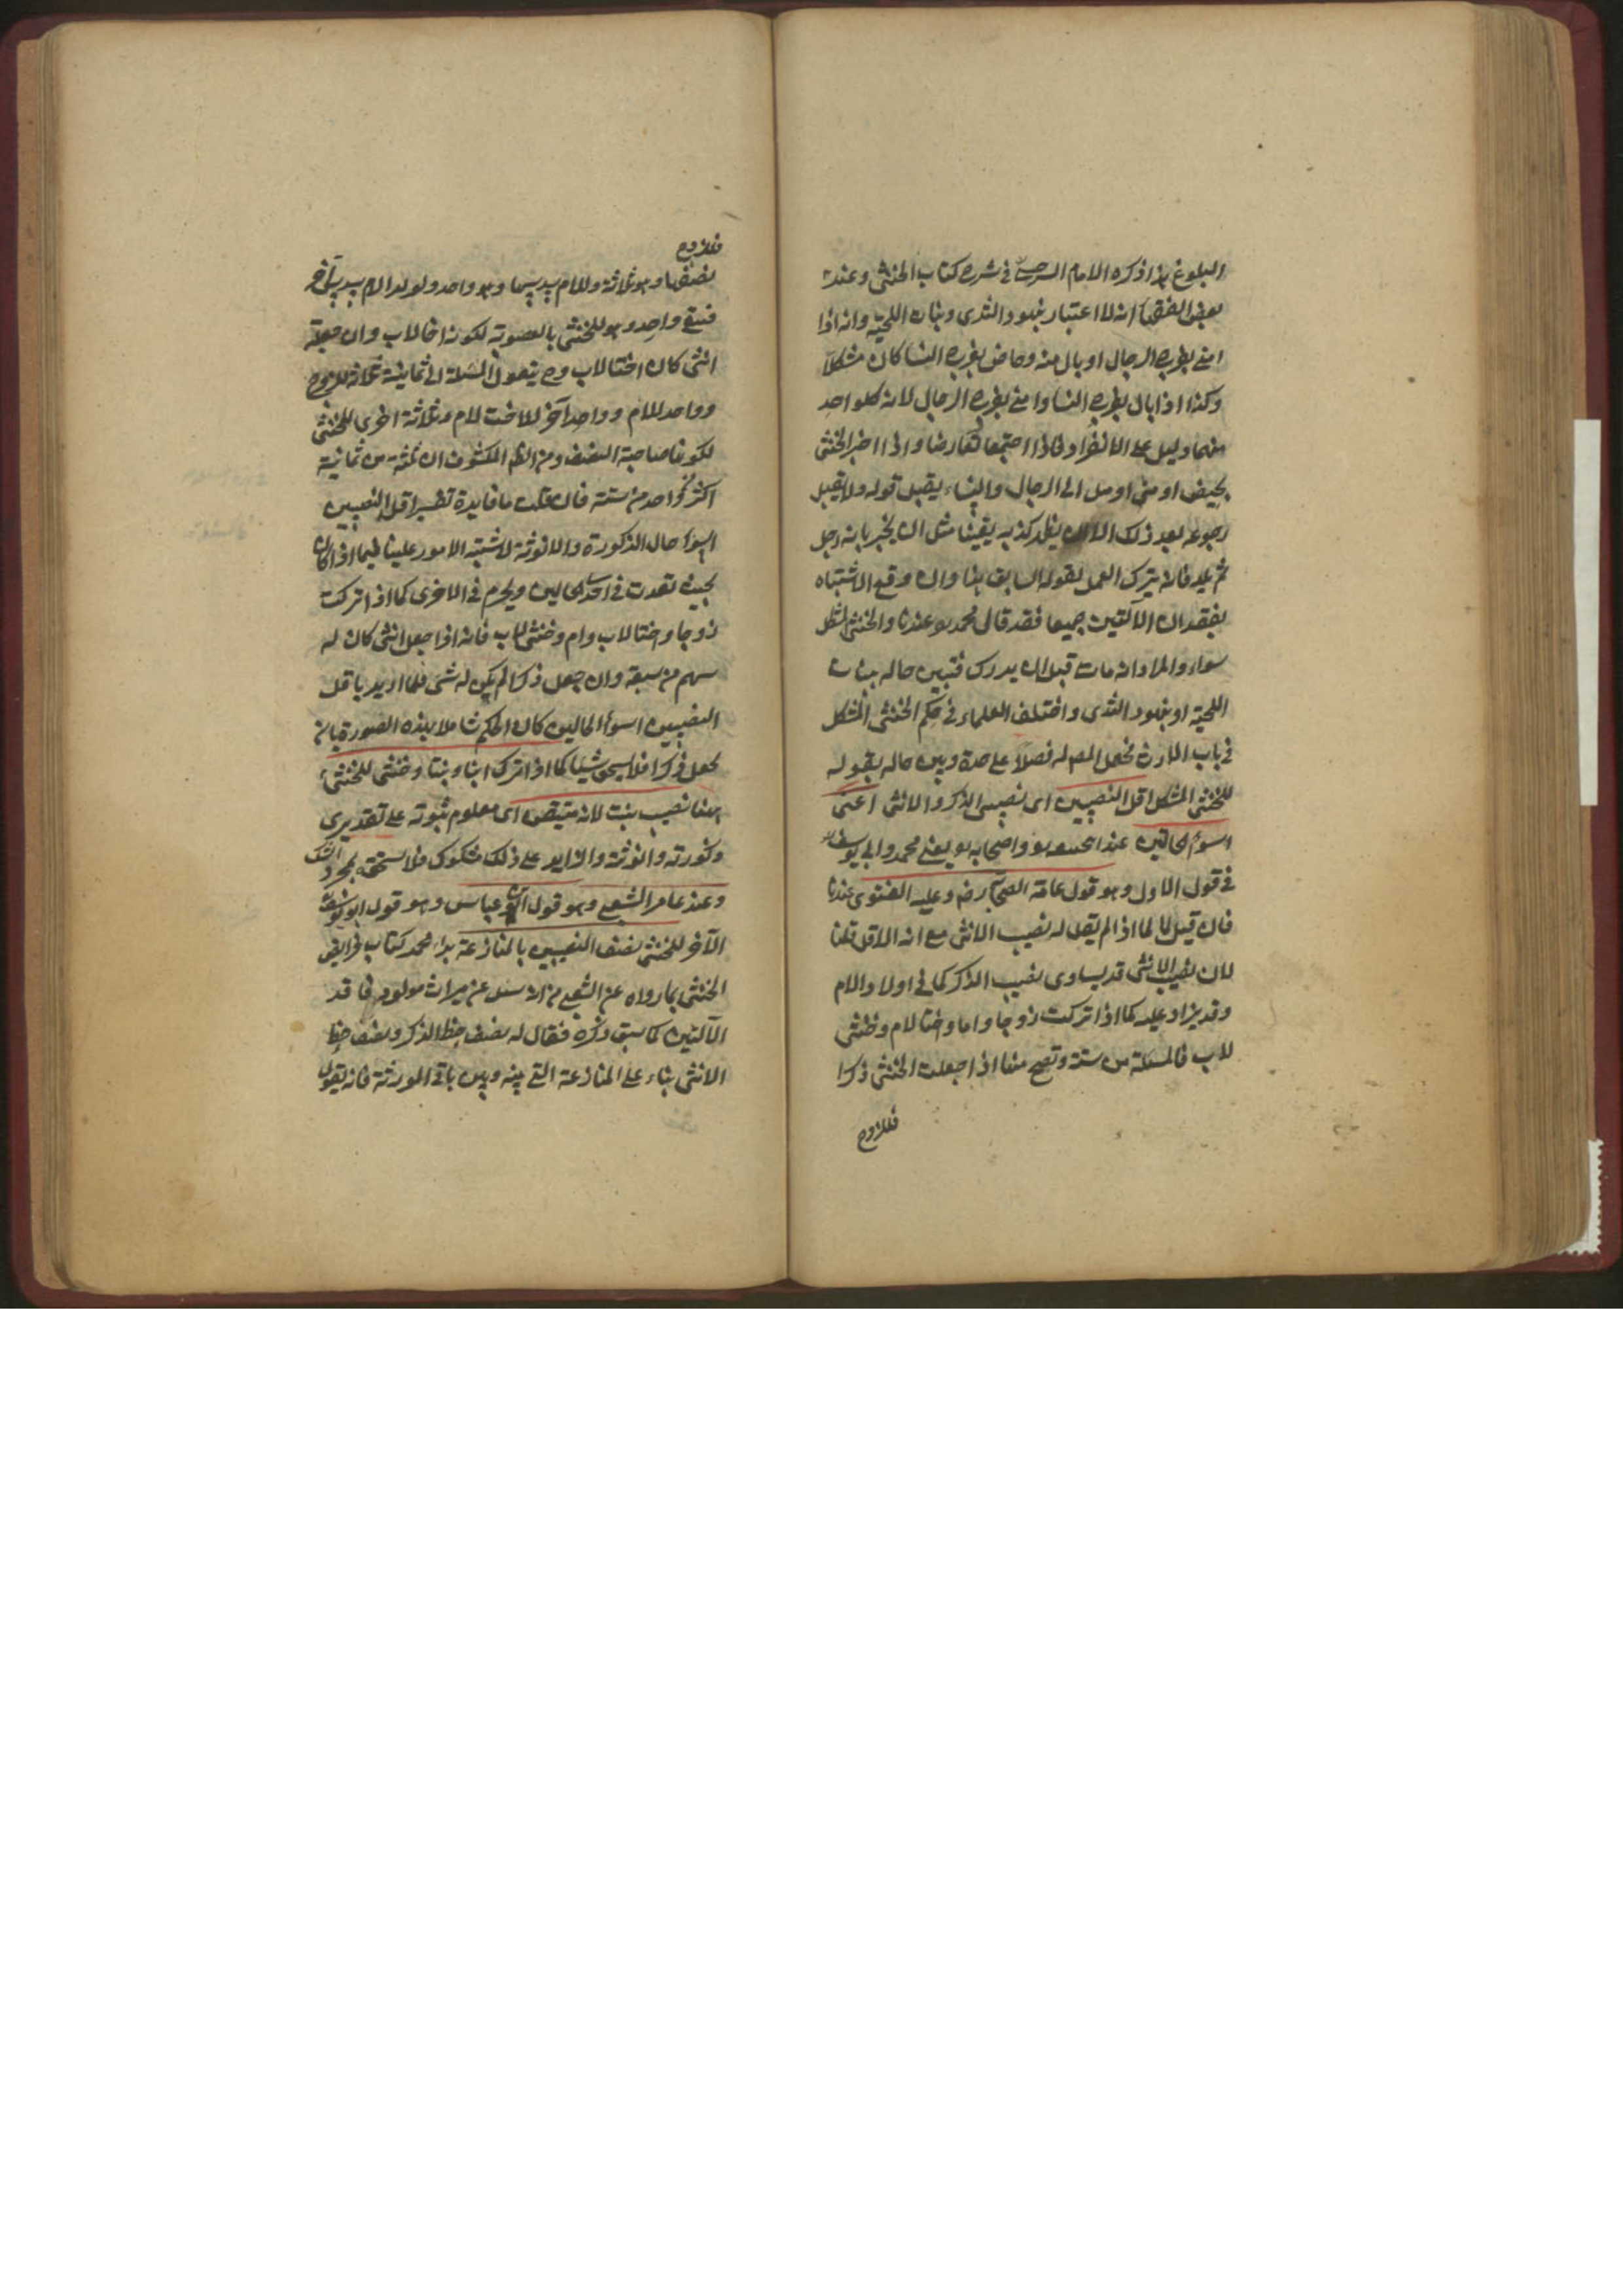 البلوغ هذا ذكره الامام السرخسى فى شرح كتاب الخنثى وعند
بعض الفقهاء انه لا اعتبار بنهود الثدى ونبات اللحية وانه اذا
امنى بفرج الرجال او بال منه وحاض بفرج النسا كان مشكلا
وكذا اذا بال بفرج النسا وامنى بفرج الرجال لان كل واحد
منهما دليل على الانفراد فاذا اجتمعا تعارضا واذا اخبر الخنثى
بحيض او منى او ميل الى الرجال والنساء يقبل قوله ولا يقبل
رجوعه بعد ذلك الا ان يظهر كذبه يقينا مثل ان يخبر بانه رجل
ثم يلد فانه يترك العمل بقوله السابق هنا وان وقع الاشتباه
بفقدان الآلتين جميعا فقد قال محمد هو عندنا والخنثى المشكل
سواء والمراد انه مات قبل ان يدرك فتبين حاله بنبات
اللحية او بنهود الثدى واختلف العلماء فى حكم الخنثى المشكل
فى باب الارث فجعل المص له فصلا على حدة وبين حاله بقوله
للخنثى المشكل اقل النصيبين اى نصيبى الذكر والانثى اعنى
اسوء الحالين عند ابى حنيفة واصحابه يعنى محمد وابى يوسف
فى قول الاول وهو قول عامة الصحابة رض وعليه الفتوى عندنا
فان قيل لماذا لم يقل له نصيب الانثى مع انه الاقل قلنا
لان نصيب الانثى قد يساوى نصيب الذكر كما فى اولاد الام
وقد يزاد عليه كما اذا تركت زوجا واما واختا لام وخنثى
لاب فالمسئلة من ستة وتصح منها اذا جعلت الخنثى ذكرا
فللزوج
فللزوج
نصفها وهو ثلاثة وللام سدسها وهو واحد ولولد الام سدس آخر
فبقى واحد وهو للخنثى بالعصوبة لكونه اخا لاب وان جعلته
انثى كان اختا لاب وح يتعول المسئلة الى ثمانية ثلاثة للزوج
وواحد للام وواحد آخر للاخت لام وثلاثة اخرى للخنثى
لكونها صاحبة النصف ومن الظاهر المكشوف ان ثلثة من ثمانية
اكثر من واحد من ستة فان قلت ما فايدة تفسير اقل النصيبين
باسوا حال الذكورة والانوثة لاشتبه الامور علينا فيما اذا كان
بحيث تعدت فى احدى الحالين ويحرم فى الاخرى كما اذا تركت
زوجا واختا لاب وام وخنثى لاب فانه اذا جعل انثى كان له
سهم من سبعة وان جعل ذكرا لم يكن له شئ فلما اريد باقل
النصيبين اسوأ الحالين كان الحكم شاملا بهذه الصورة فانه
يجعل ذكرا فلا يستحق شيئا كما اذا ترك ابنا وبنتا وخنثى للخنثى
هنا نصيب بنت لانه متيقن اى معلوم ثبوته على تقديرى
ذكورته وانوثته والزايد على ذلك مشكوك فلا يستحقه بمجرد الشك
وعند عامر الشعبى وهو قول ابن عباس وهو قول ابو يوسف
الآخر للخنثى نصف النصيبين بالمنازعة بدا محمد كتاب فرايض
الخنثى بما رواه عن الشعبى من انه سئل عن ميراث مولود فاقد
الآلتين كما سبق ذكره فقال له نصف حظ الذكر ونصف حظ
الانثى بناء على المنازعة التى بينه وبين باقى الورثة فانه يقول